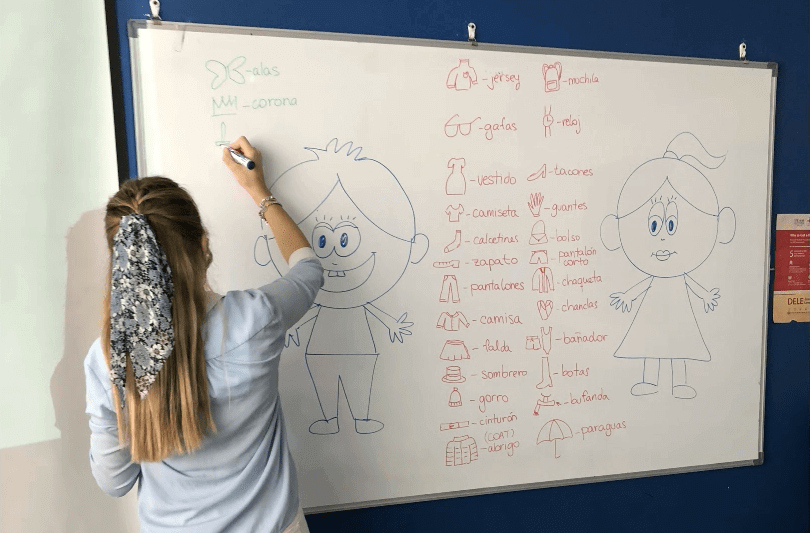 -alas
-corona
-jersey
-gafas
-vestido
-camiseta
-calcetines
-zapato
-pantalones
-camisa
-falda
-sombrero
-gorro
-cinturón
(COAT)
-abrigo
-mochila
-reloj
-tacones
-guantes
-bolso
-pantalón
corto
-chaqueta
-chanclas
-bañador
-botas
-bufanda
-paraguas
5
DELE